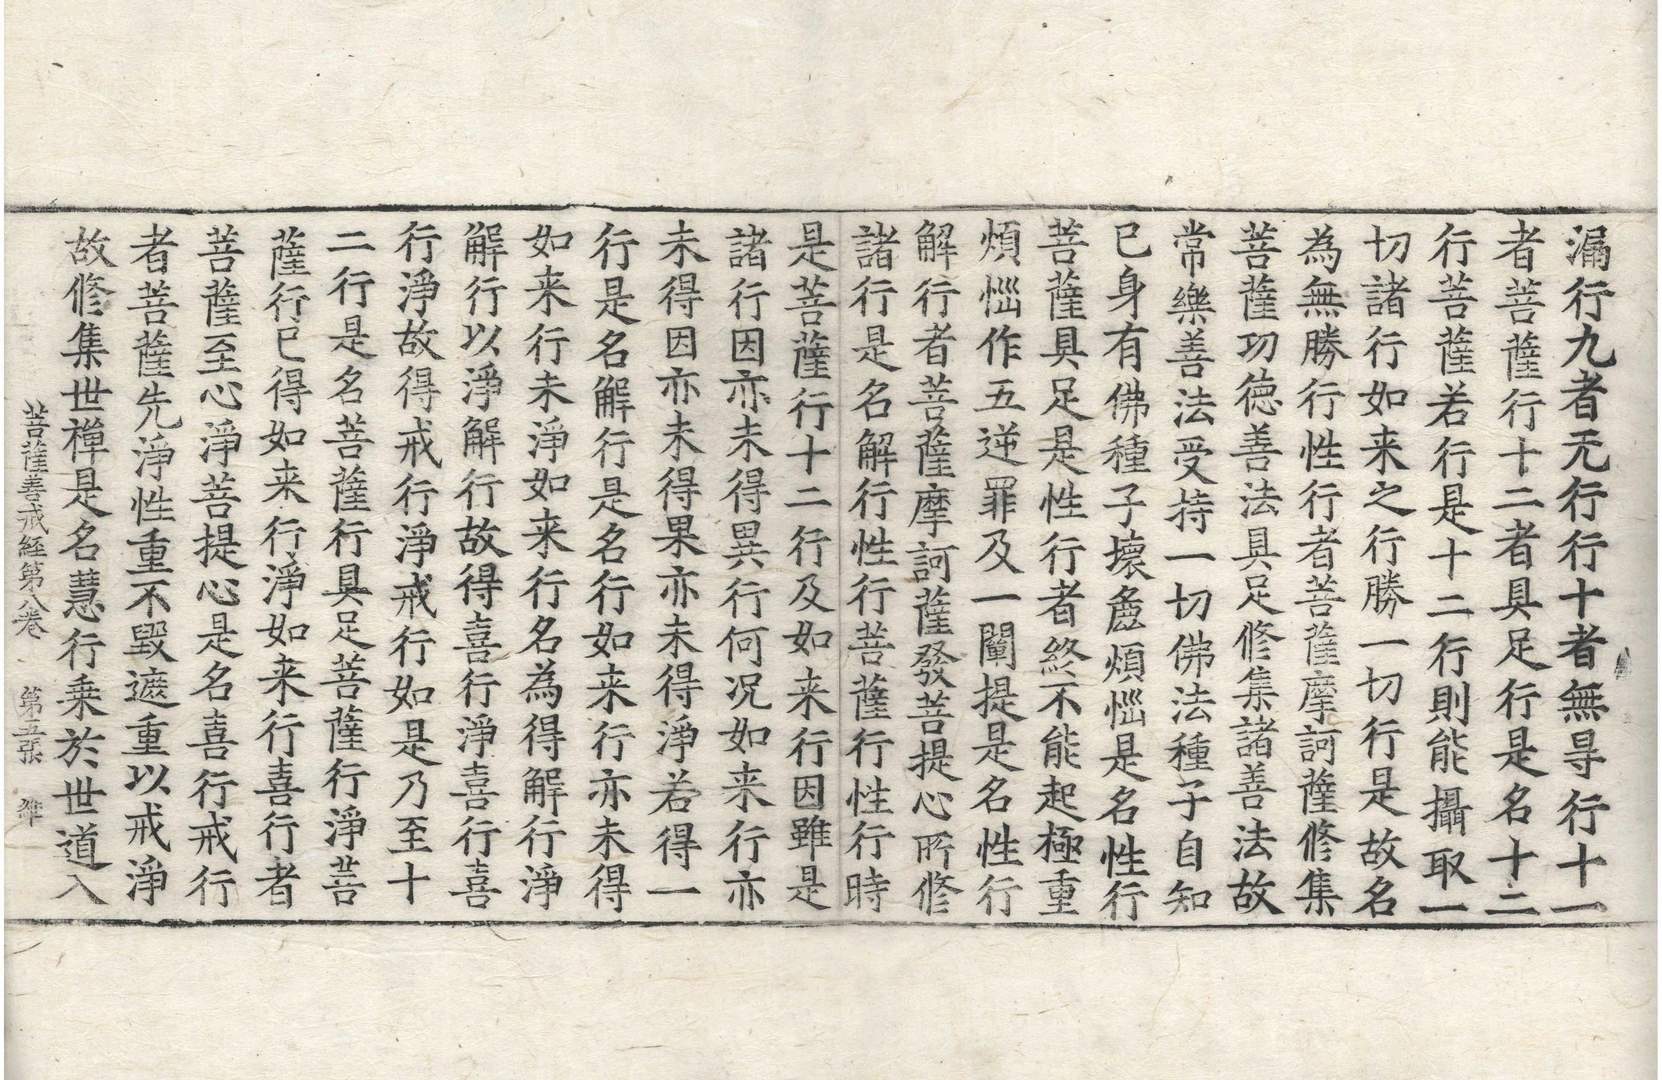 漏行九者无行行十者無㝵行十一
者菩薩行十二者具足行是名十二
行菩薩若行是十二行則能攝取一
切諸行如来之行勝一切行是故名
為無勝行性行者菩薩摩訶薩修集
菩薩㓛德善法具足修集諸善法故
常樂善法受持一切佛法種子自知
已身有佛種子壞麁煩惱是名性行
菩薩具足是性行者終不能起極重
煩惱作五逆罪及一闡提是名性行
解行者菩薩摩訶薩發菩提心所修
諸行是名解行性行菩薩行性行時
是菩薩行十二行及如来行因雖是
諸行因亦未得異行何况如来行亦
未得因亦未得果亦未得淨若得一
行是名解行是名行如来行亦未得
如来行未淨如来行名為得解行淨
解行以淨解行故得喜行淨喜行喜
行淨故得戒行淨戒行如是乃至十
二行是名菩薩行具足菩薩行淨菩
薩行已得如来行淨如来行喜行者
菩薩至心淨菩提心是名喜行戒行
者菩薩先淨性重不毀遮重以戒淨
故修集世禪是名慧行乗於世道入
菩薩善戒経第八卷 第五張